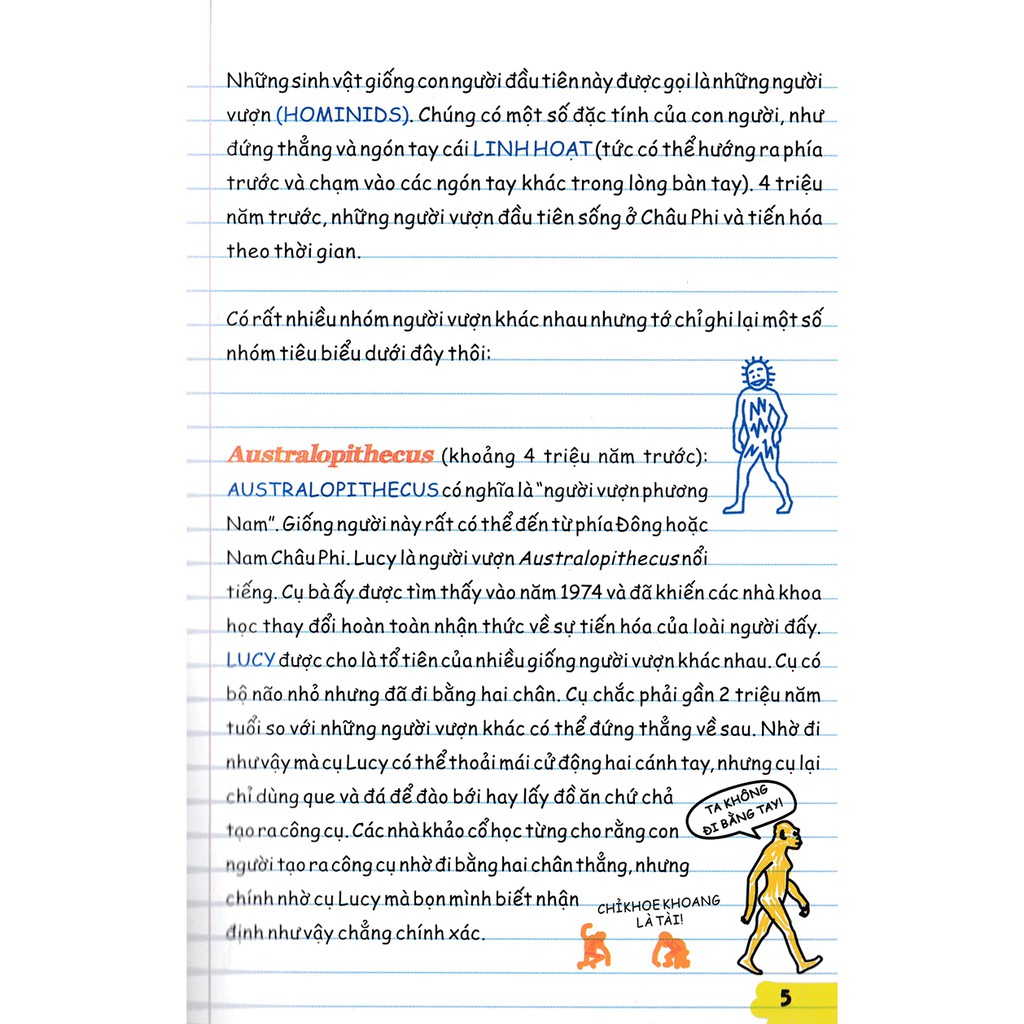 Những sinh vật giống con người đầu tiên này được gọi là những người
vượn (HOMINIDS). Chúng có một số đặc tính của con người, như
đứng thẳng và ngón tay cái LINH HOẠT (tức có thể hướng ra phía
trước và chạm vào các ngón tay khác trong lòng bàn tay). 4 triệu
năm trước, những người vượn đầu tiên sống ở Châu Phi và tiến hóa
theo thời gian.
Có rất nhiều nhóm người vượn khác nhau nhưng tớ chỉ ghi lại một số
nhóm tiêu biểu dưới đây thôi:
Australopithecus (khoảng 4 triệu năm trước):
AUSTRALOPITHECUS có nghĩa là "người vượn phương
Nam". Giống người này rất có thể đến từ phía Đông hoặc
Nam Châu Phi. Lucy là người vượn Australopithecus nổi
tiếng. Cụ bà ấy được tìm thấy vào năm 1974 và đã khiến các nhà khoa
học thay đổi hoàn toàn nhận thức về sự tiến hóa của loài người đấy.
LUCY được cho là tổ tiên của nhiều giống người vượn khác nhau. Cụ có
bộ não nhỏ nhưng đã đi bằng hai chân. Cụ chắc phải gần 2 triệu năm
tuổi so với những người vượn khác có thể đứng thẳng về sau. Nhờ đi
như vậy mà cụ Lucy có thể thoải mái cử động hai cánh tay, nhưng cụ lại
chỉ dùng que và đá để đào bới hay lấy đồ ăn chứ chả
tạo ra công cụ. Các nhà khảo cổ học từng cho rằng con
người tạo ra công cụ nhờ đi bằng hai chân thẳng, nhưng
chính nhờ cụ Lucy mà bọn mình biết nhận
định như vậy chẳng chính xác.
TA KHÔNG
ĐI BẰNG TAY!
CHỈ KHOE KHOANG
LÀ TÀI!
5